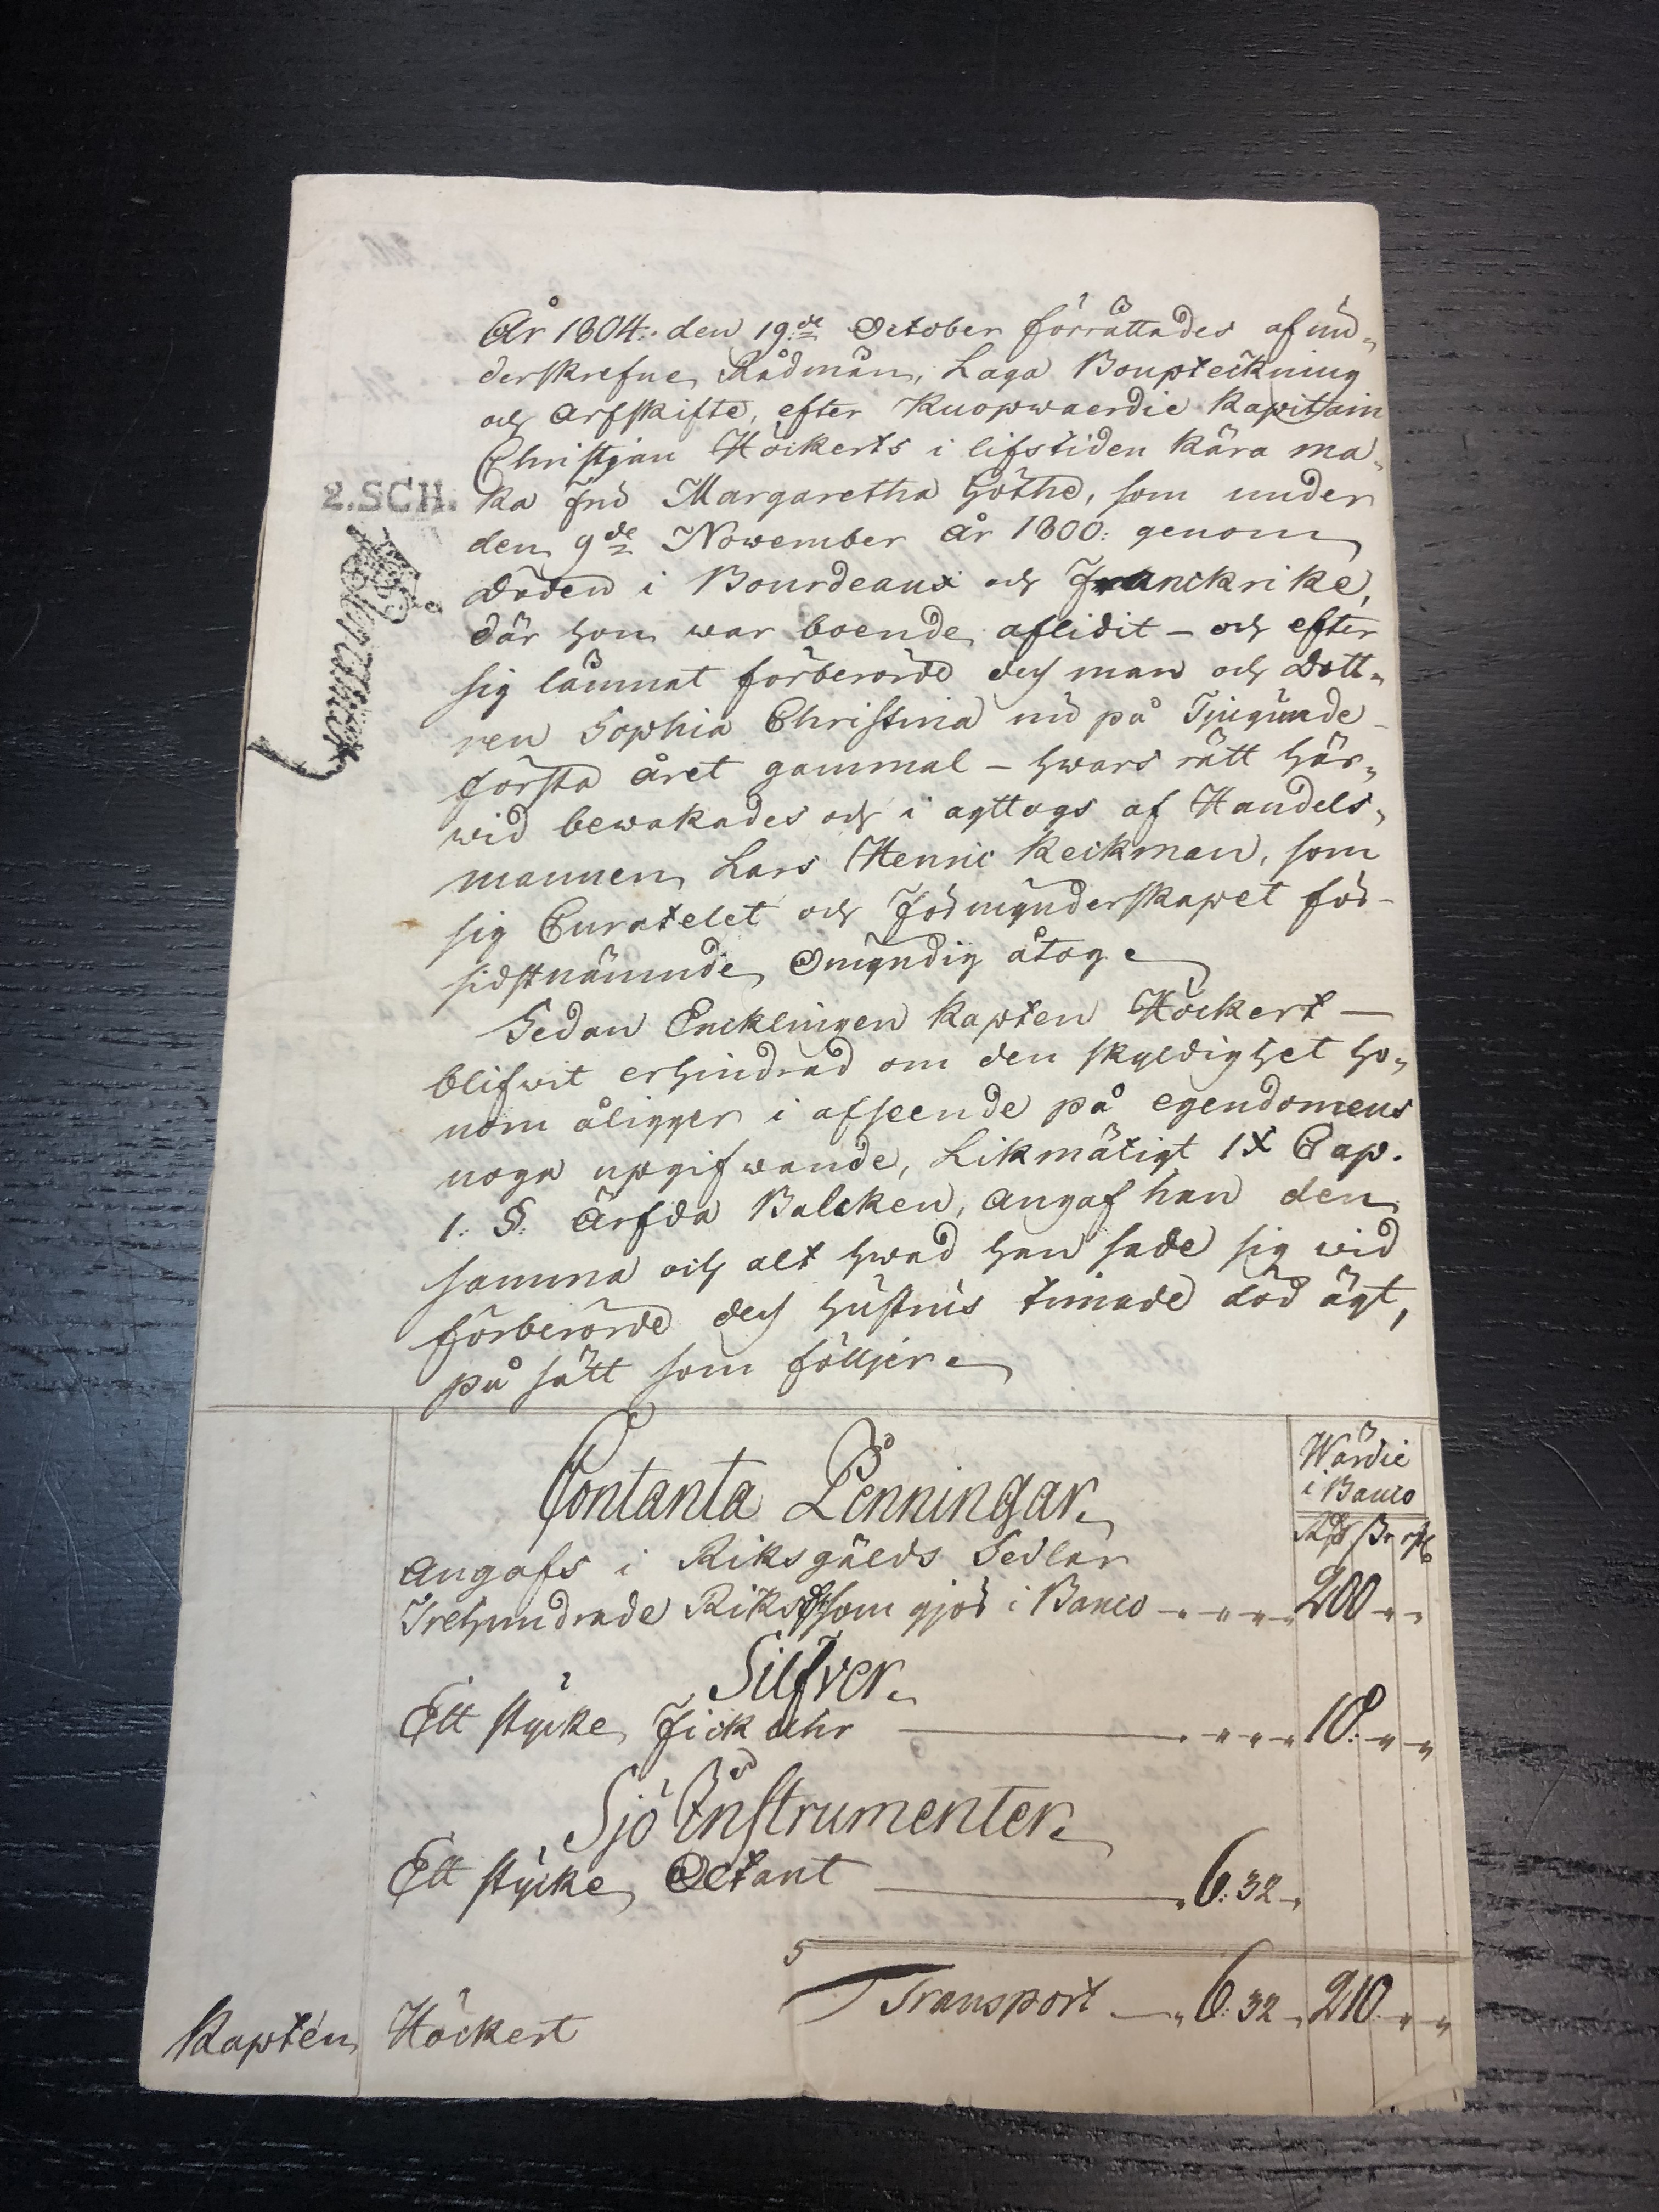 År 1804: den 19de October förrättades af un-
derskrefne, Rådmän, Laga Boupteckning
och arfskifte, efter Kuopwaerdie Kapitain
Christjan Höckerts i lifstiden kära ma-
2.SCH.
ka Fru Margaretha Göthe, som under
den 9de November år 1800: genom
döden i Bourdeaux och Franckrike,
där hon war boende, aflidit - och efter
sig lämnat förberörde des man och Dott-
ren Sophia Christina nu på Tjugunde
första året gammal - hwars rätt här-
wid bewakades och i agttogs af Handels-
mannen, Lars Henric Keckman, som
sig Curatelet och Förmynderskapet för
sidstnämnde, Omyndig åtog.
Sedan Encklingen Kapten Höckert -
blifwit erhindrad om den skyldighet ho-
nom åligger i afseende på egendomens
noga upgifwande, Likmätigt IX Cap.
1: §. Ärfda Balcken, angaf han den
samma och alt hwad han sade sig wid
förberörde des hustrus timade död ägt,
på sätt som följer.
Contanta Penningar.
Wärde
i Banco
Rd ß r
angafs i Riksgälds Sedlar
Trehundrade Riksd som gjör i Banco 200
Silfver.
Ett stycke, Fick uhr 10:
Sjö Instrumenter.
Ett stycke, Octant 6: 32
Transport 6: 32 210
Kapten Höckert